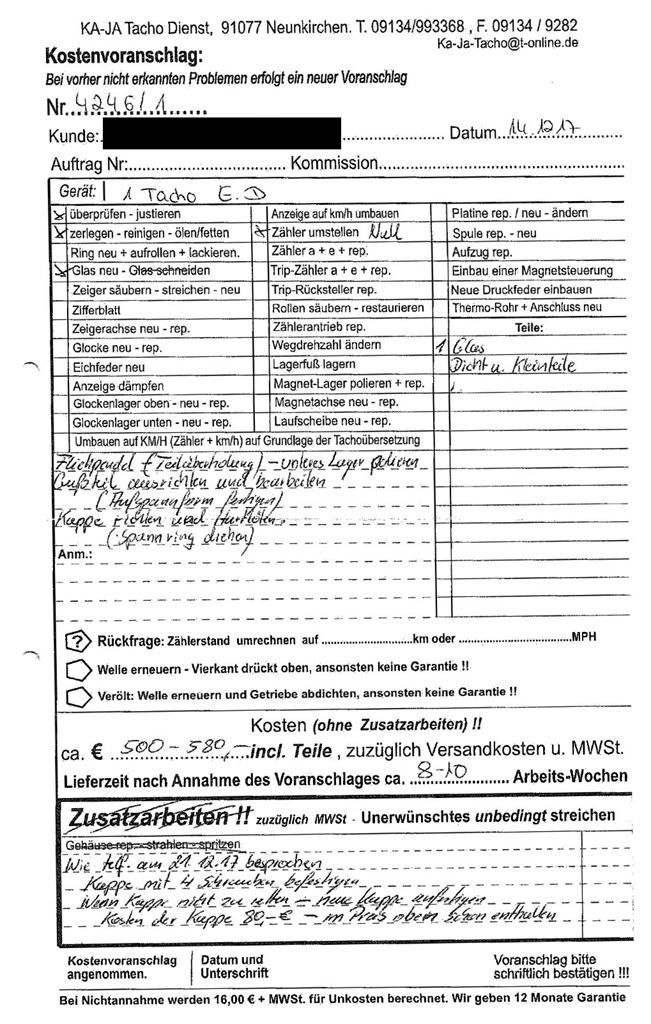 KA-JA Tacho Dienst, 91077 Neunkirchen. T. 09134/993368 , F. 09134 / 9282
Ka-Ja-Tacho@t-online.de
Kostenvoranschlag:
Bei vorher nicht erkannten Problemen erfolgt ein neuer Voranschlag
Nr. 4246/1
Kunde: Datum 14.12.17
Auftrag Nr: Kommission
Gerät: 1 Tacho E.D
überprüfen - justieren
zerlegen - reinigen - ölen/fetten
Ring neu + aufrollen + lackieren.
Glas neu - Glas schneiden
Zeiger säubern - streichen - neu
Zifferblatt
Zeigerachse neu - rep.
Glocke neu - rep.
Eichfeder neu
Anzeige dämpfen
Glockenlager oben - neu - rep.
Glockenlager unten - neu - rep.
Anzeige auf km/h umbauen
Zähler umstellen Null
Zähler a + e + rep.
Trip-Zähler a + e + rep.
Trip-Rücksteller rep.
Rollen säubern - restaurieren
Zählerantrieb rep.
Wegdrehzahl ändern
Lagerfuß lagern
Magnet-Lager polieren + rep.
Magnetachse neu - rep.
Laufscheibe neu - rep.
Platine rep. / neu - ändern
Spule rep. - neu
Aufzug rep.
Einbau einer Magnetsteuerung
Neue Druckfeder einbauen
Thermo-Rohr + Anschluss neu
Teile:
1 Glas
Dicht u. Kleinteile
Umbauen auf KM/H (Zähler + km/h) auf Grundlage der Tachoübersetzung
Fliehpendel (Teilüberholung) - unteres Lager polieren
Gußteil ausrichten und bearbeiten
(Aufspannform fertigen)
Kappe richten und Hartlöten.
(Spannring drehen)
Anm.:
? Rückfrage: Zählerstand umrechnen auf km oder MPH
Welle erneuern - Vierkant drückt oben, ansonsten keine Garantie !!
Verölt: Welle erneuern und Getriebe abdichten, ansonsten keine Garantie !!
Kosten (ohne Zusatzarbeiten) !!
ca. € 500 - 580,- incl. Teile , zuzüglich Versandkosten u. MWSt.
Lieferzeit nach Annahme des Voranschlages ca. 8-10 Arbeits-Wochen
Zusatzarbeiten !! zuzüglich MWSt - Unerwünschtes unbedingt streichen
Gehäuse rep. - strahlen - spritzen
Wie telf. am 21.12.17 besprochen
Kappe mit 4 Schrauben befestigen
Wenn Kappe nicht zu retten - neue Kappe anfertigen
Kosten der Kappe 80,-€ - im Preis oben schon enthalten
Kostenvoranschlag angenommen.
Datum und Unterschrift
Voranschlag bitte schriftlich bestätigen !!!
Bei Nichtannahme werden 16,00 € + MWSt. für Unkosten berechnet. Wir geben 12 Monate Garantie